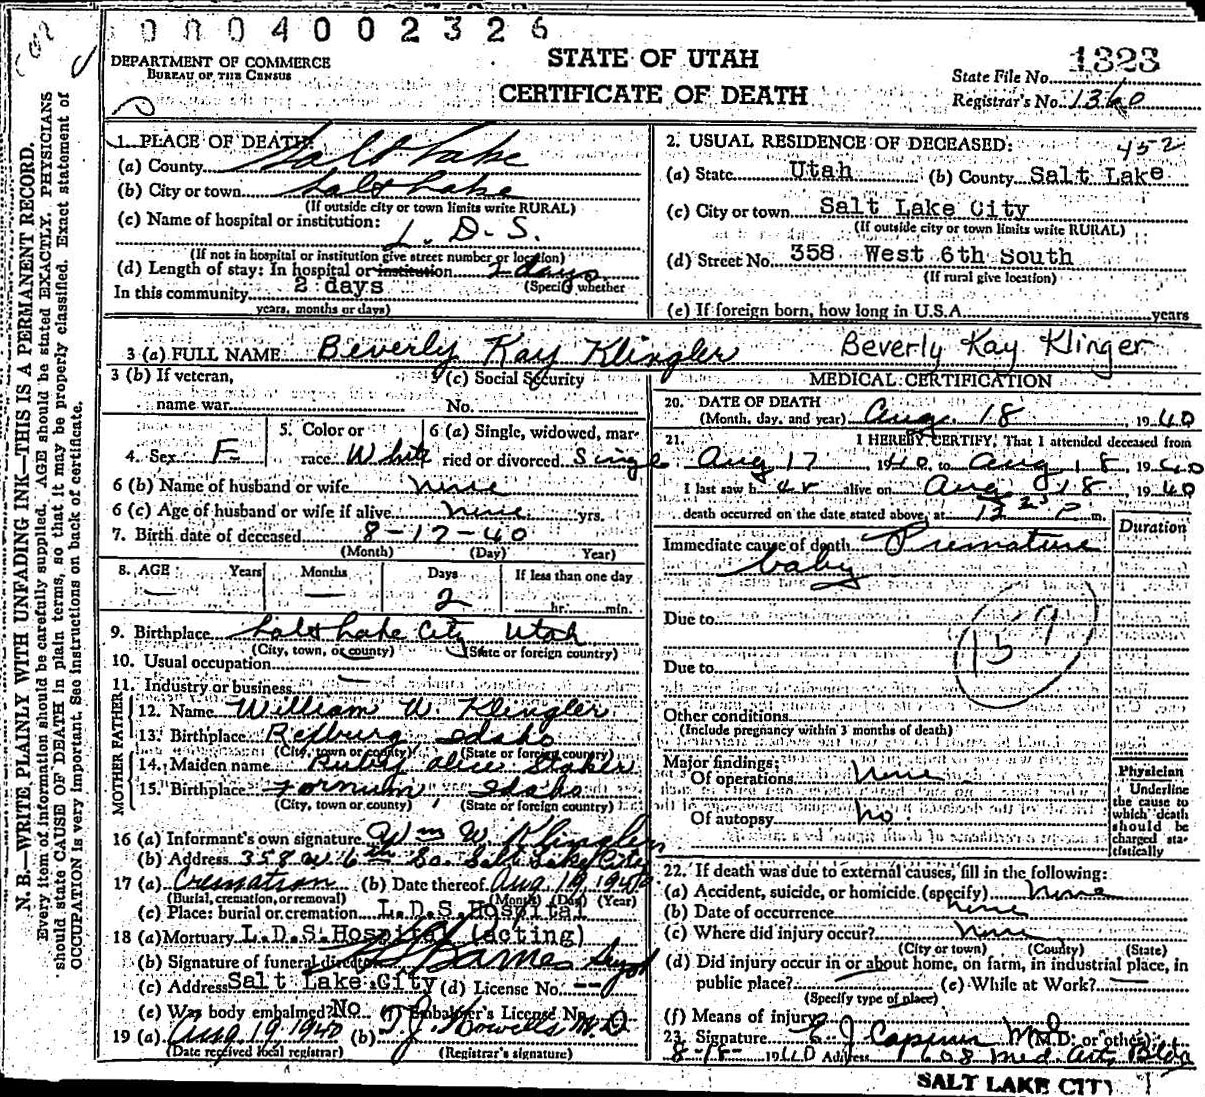 0004002326
DEPARTMENT OF COMMERCE
BUREAU OF THE CENSUS
STATE OF UTAH
CERTIFICATE OF DEATH
1323
State File No.
Registrar's No. 1360
N. B.—WRITE PLAINLY WITH UNFADING INK—THIS IS A PERMANENT RECORD.
Every item of information should be carefully supplied. AGE should be stated EXACTLY. PHYSICIANS
should state CAUSE OF DEATH in plain terms, so that it may be properly classified. Exact statement of
OCCUPATION is very important. See instructions on back of certificate.
1. PLACE OF DEATH:
(a) County Salt Lake
(b) City or town Salt Lake
(If outside city or town limits write RURAL)
(c) Name of hospital or institution:
L. D. S.
(If not in hospital or institution give street number or location)
(d) Length of stay: In hospital or institution 2 days
(Specify whether
In this community 2 days
years, months or days)
2. USUAL RESIDENCE OF DECEASED: 452
(a) State Utah (b) County Salt Lake
(c) City or town Salt Lake City
(If outside city or town limits write RURAL)
(d) Street No. 358 West 6th South
(If rural give location)
(e) If foreign born, how long in U.S.A. years
3 (a) FULL NAME Beverly Kay Klingler Beverly Kay Klinger
3 (b) If veteran,
name war
3 (c) Social Security
No.
4. Sex F
5. Color or
race White
6 (a) Single, widowed, mar-
ried or divorced Single
6 (b) Name of husband or wife none
6 (c) Age of husband or wife if alive none yrs.
7. Birth date of deceased 8-17-40
(Month) (Day) Year)
8. AGE Years Months Days If less than one day
— — 2 hr. min.
9. Birthplace Salt Lake City Utah
(City, town, or county) (State or foreign country)
10. Usual occupation —
11. Industry or business
FATHER
12. Name William W. Klingler
13. Birthplace Rexburg Idaho
(City, town or county) (State or foreign country)
MOTHER
14. Maiden name Ruby Alice Staker
15. Birthplace Idaho
(City, town or county) (State or foreign country)
16 (a) Informant's own signature Wm W. Klingler
(b) Address 358 W 6th So. Salt Lake City
17 (a) Cremation (b) Date thereof Aug 19, 1940
(Burial, cremation, or removal) (Month) (Day) (Year)
(c) Place: burial or cremation L.D.S. Hospital
18 (a) Mortuary L.D.S. Hospital (acting)
(b) Signature of funeral director Barnes Supt
(c) Address Salt Lake City (d) License No. --
(e) Was body embalmed? No (f) Embalmer's License No.
19 (a) Aug 19, 1940 (b) T. J. Howells M.D.
(Date received local registrar) (Registrar's signature)
MEDICAL CERTIFICATION
20. DATE OF DEATH
(Month, day, and year) Aug. 18, 1940
21. I HEREBY CERTIFY, That I attended deceased from
Aug 17 1940, to Aug 18, 1940
I last saw her alive on Aug 18, 1940
death occurred on the date stated above, at 12 25 P m.
Duration
Immediate cause of death Premature
baby
Due to
159
Due to
Other conditions
(Include pregnancy within 3 months of death)
Major findings:
Of operations none
Of autopsy no.
Physician
Underline
the cause to
which death
should be
charged sta-
tistically
22. If death was due to external causes, fill in the following:
(a) Accident, suicide, or homicide (specify) none
(b) Date of occurrence none
(c) Where did injury occur? none
(City or town) (County) (State)
(d) Did injury occur in or about home, on farm, in industrial place, in
public place? — (e) While at Work? —
(Specify type of place)
(f) Means of injury
23. Signature E. J. M.D. (M.D. or other)
8-18- 1940 Address 608 Med Art, Bldg
SALT LAKE CITY